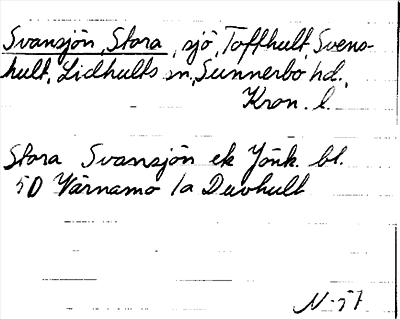 Svansjön, Stora, sjö, Toffhult, Svens-
hult, Lidhults sn, Sunnerbo hd.,
Kron. l.
Stora Svansjön ek Jönk. bl.
5D Värnamo 1a Duvhult
N-57